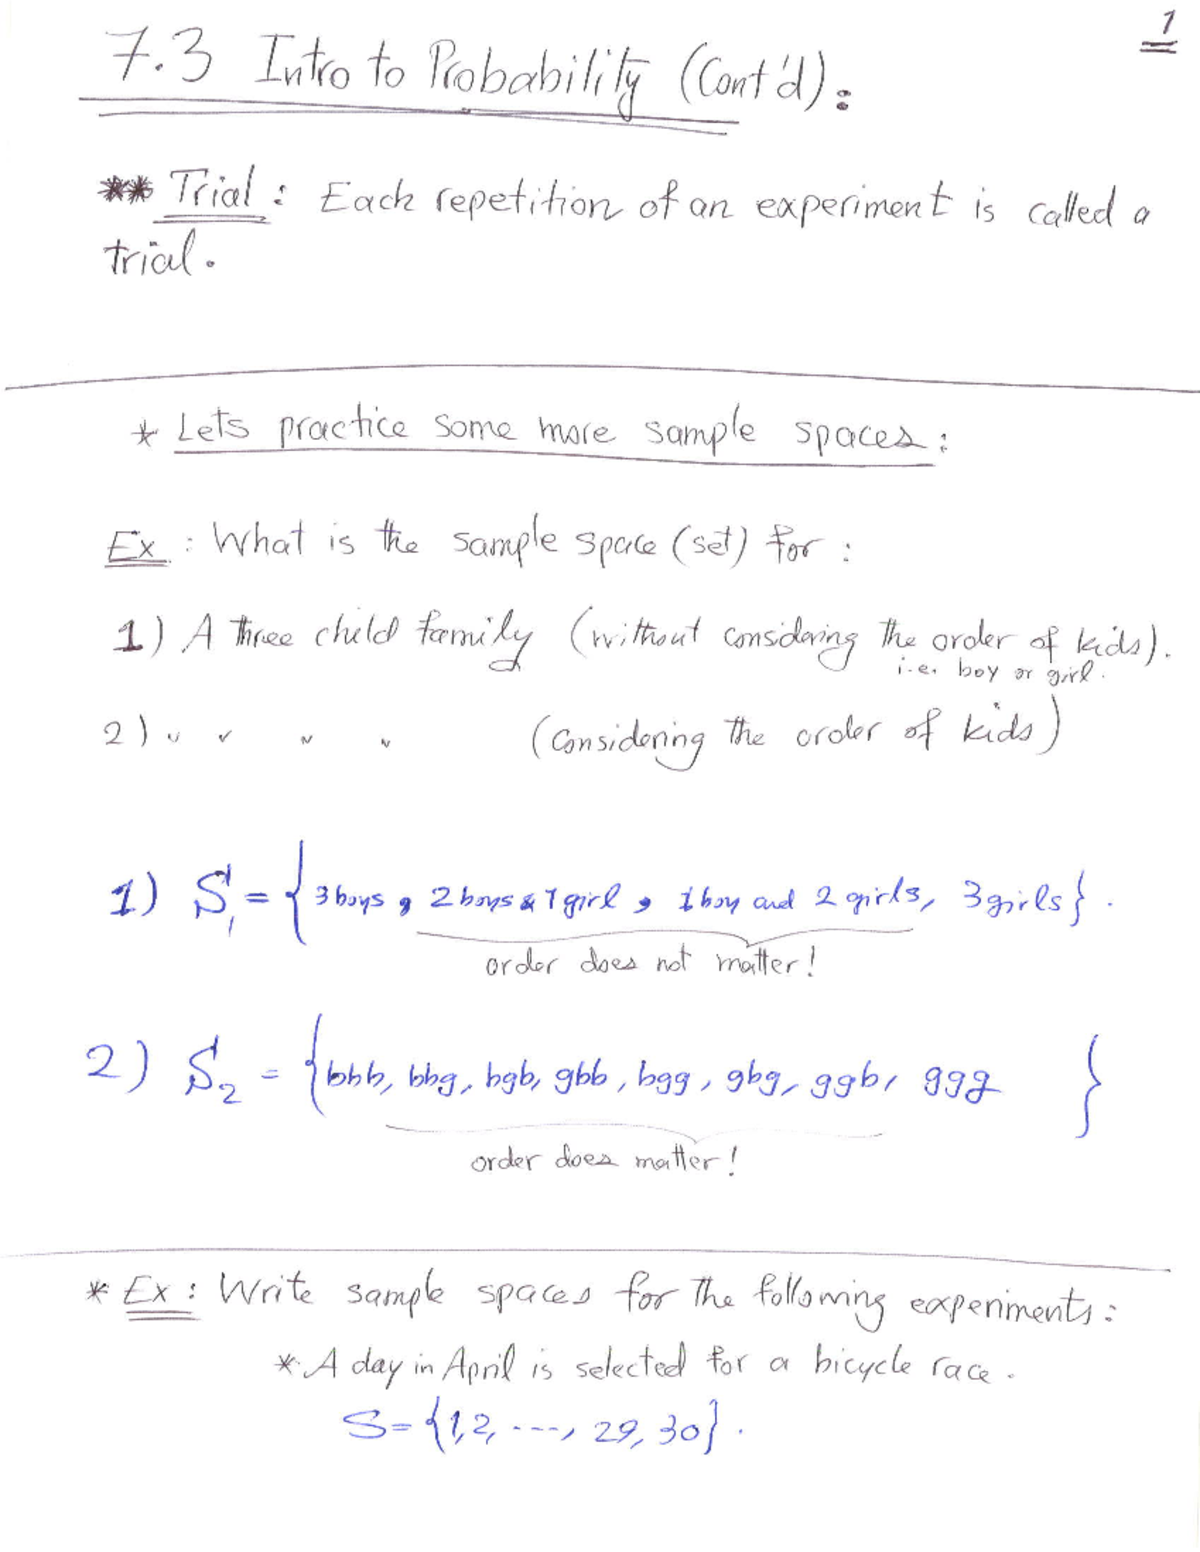 1
7.3 Intro to Probability (Cont'd):
** Trial: Each repetition of an experiment is called a
trial.
* Lets practice some more sample spaces:
Ex: What is the sample space (set) for:
1) A three child family (without considering the order of kids).
i.e. boy or girl.
2) " " " " (Considering the order of kids)
1) S₁ = {3 boys, 2 boys & 1 girl, 1 boy and 2 girls, 3 girls}.
order does not matter!
2) S₂ = {bbb, bbg, bgb, gbb, bgg, gbg, ggb, ggg }
order does matter!
* Ex: Write sample spaces for the following experiments:
* A day in April is selected for a bicycle race.
S = {1, 2, ----, 29, 30}.